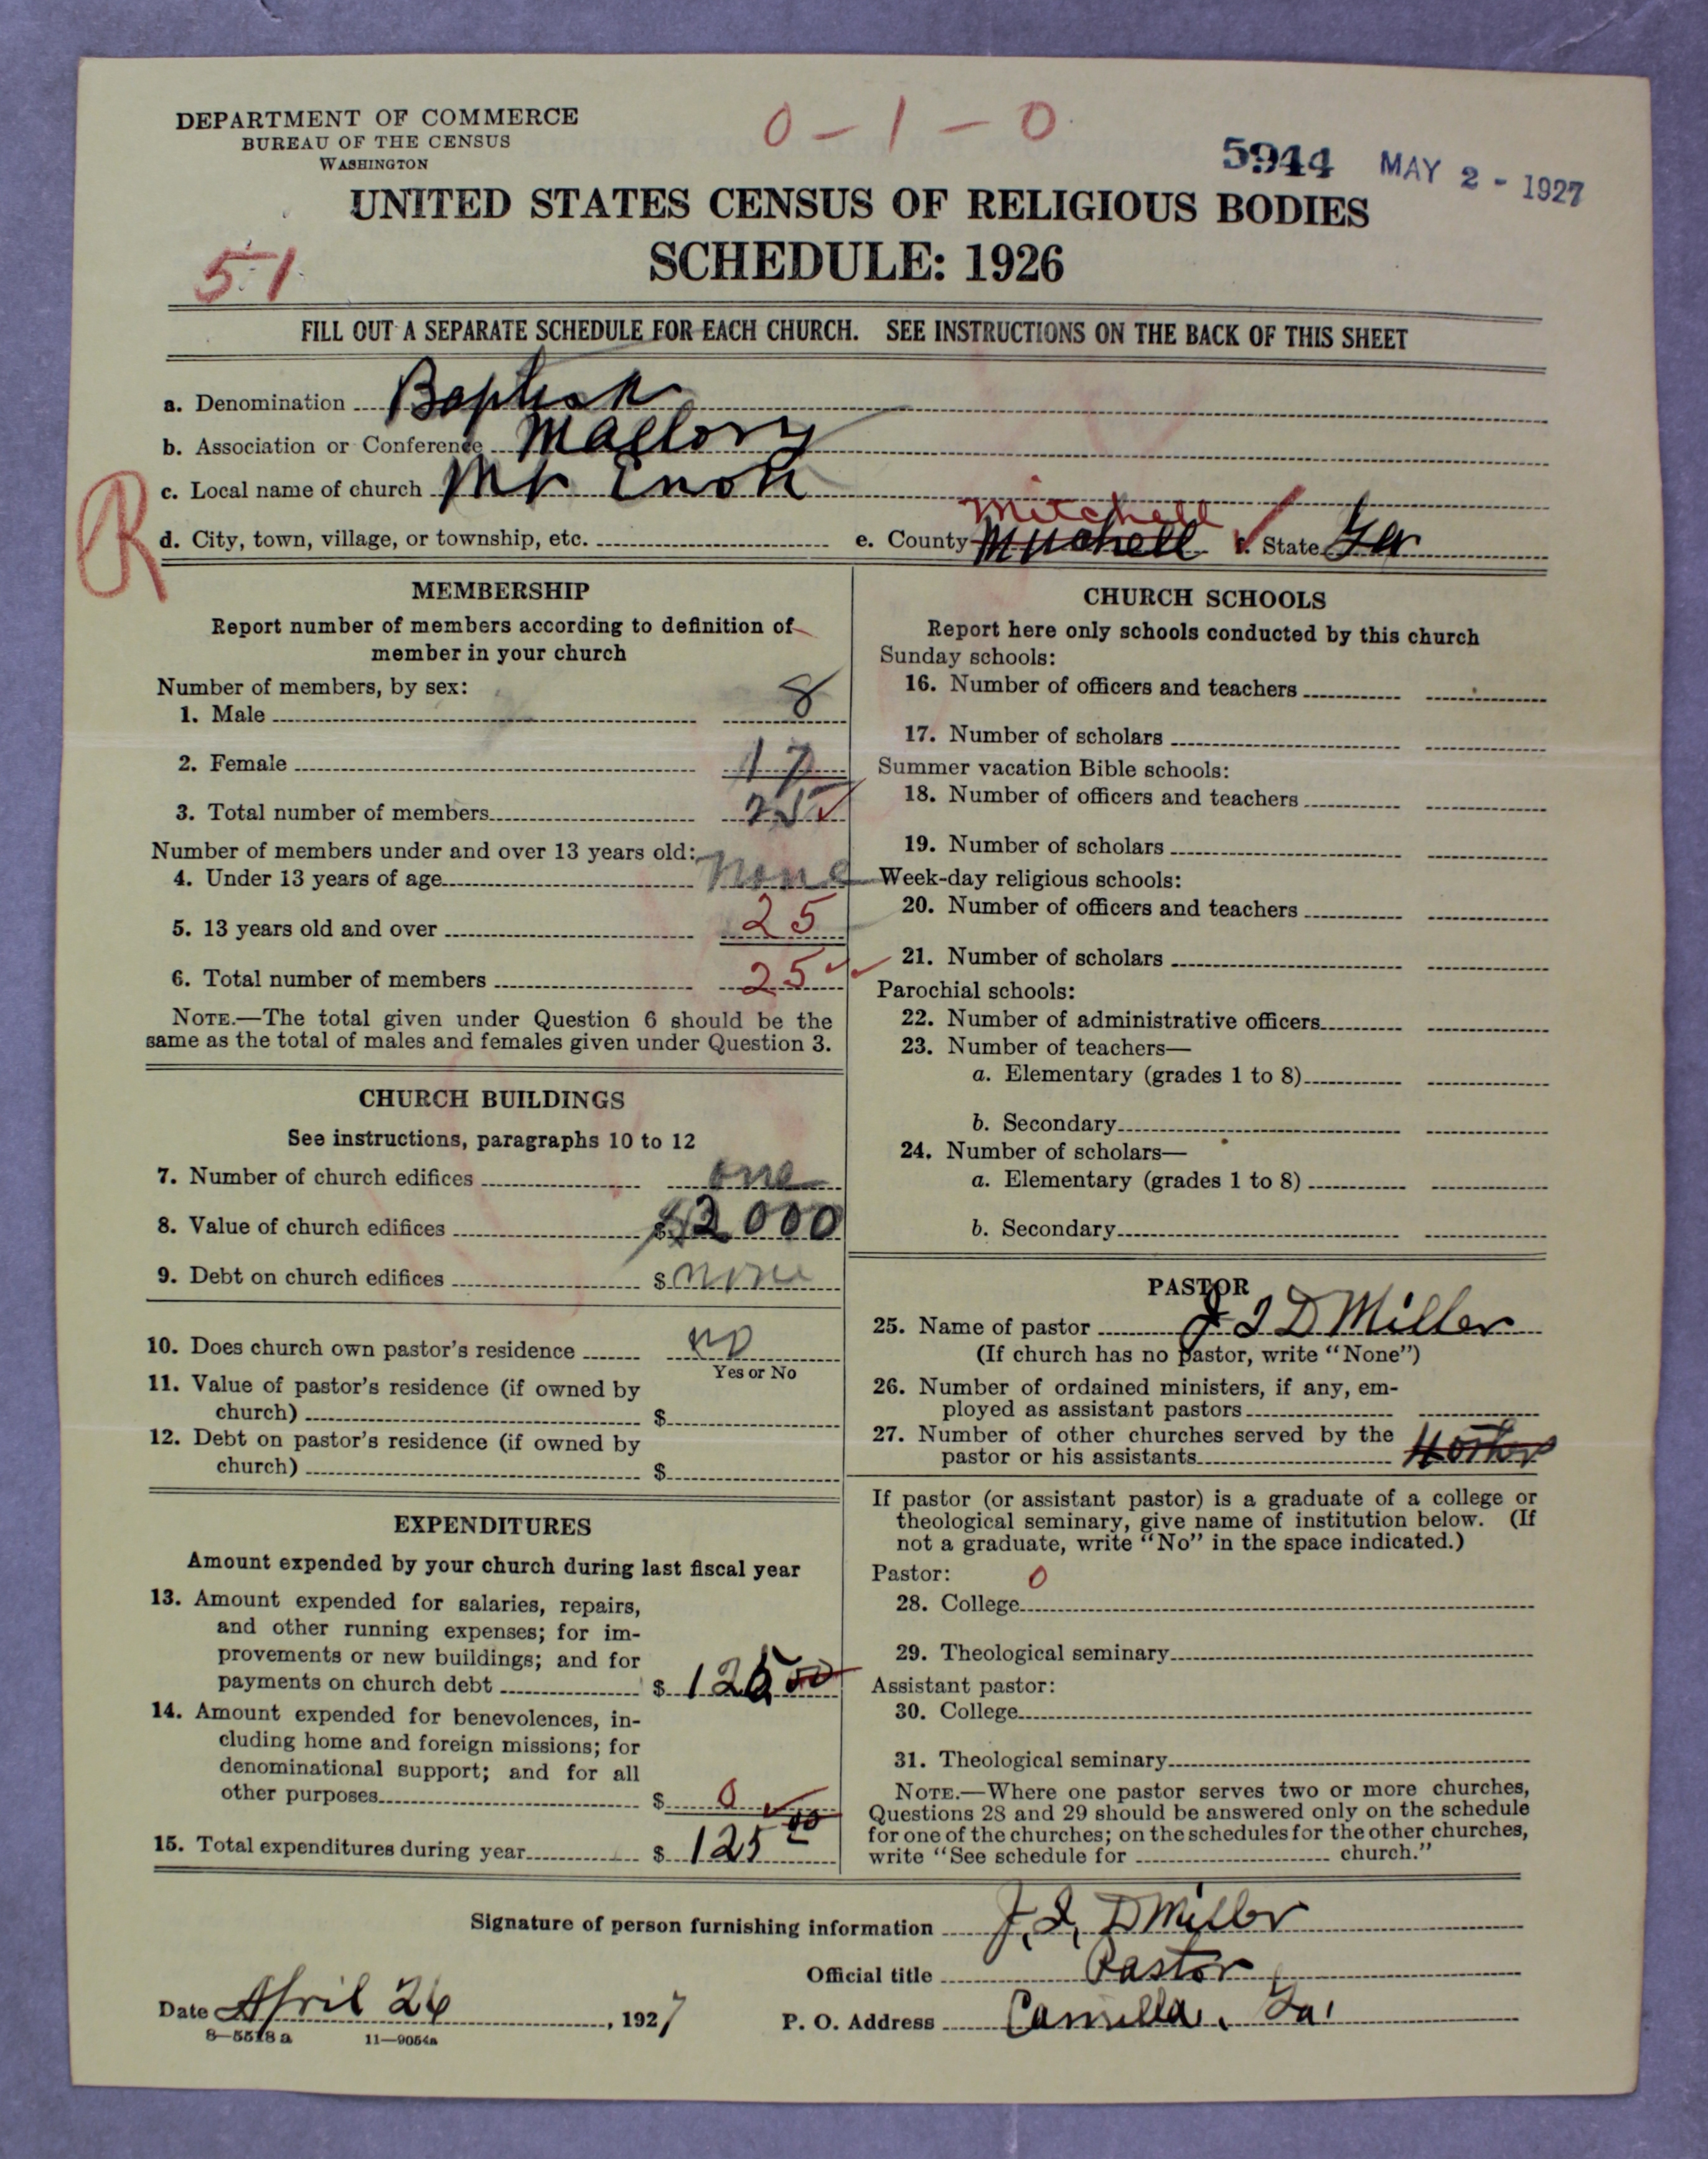 DEPARTMENT OF COMMERCE
BUREAU OF THE CENSUS
WASHINGTON
0 - 1 - 0
5944 MAY 2 - 1927
UNITED STATES CENSUS OF RELIGIOUS BODIES
SCHEDULE: 1926
51
FILL OUT A SEPARATE SCHEDULE FOR EACH CHURCH. SEE INSTRUCTIONS ON THE BACK OF THIS SHEET
a. Denomination Baptist
b. Association or Conference Mallory
c. Local name of church Mt Enon
R
Mitchell
d. City, town, village, or township, etc. e. County Mitchell f. State Ga
MEMBERSHIP
Report number of members according to definition of
member in your church
Number of members, by sex:
1. Male 8
2. Female 17
3. Total number of members 25
Number of members under and over 13 years old:
4. Under 13 years of age none
5. 13 years old and over 25
6. Total number of members 25
NOTE.—The total given under Question 6 should be the
same as the total of males and females given under Question 3.
CHURCH BUILDINGS
See instructions, paragraphs 10 to 12
7. Number of church edifices one
8. Value of church edifices $2000
9. Debt on church edifices $ none
10. Does church own pastor's residence no
Yes or No
11. Value of pastor's residence (if owned by
church) $
12. Debt on pastor's residence (if owned by
church) $
EXPENDITURES
Amount expended by your church during last fiscal year
13. Amount expended for salaries, repairs,
and other running expenses; for im-
provements or new buildings; and for
payments on church debt $ 125 00
14. Amount expended for benevolences, in-
cluding home and foreign missions; for
denominational support; and for all
other purposes $ 0
15. Total expenditures during year $ 125 00
CHURCH SCHOOLS
Report here only schools conducted by this church
Sunday schools:
16. Number of officers and teachers
17. Number of scholars
Summer vacation Bible schools:
18. Number of officers and teachers
19. Number of scholars
Week-day religious schools:
20. Number of officers and teachers
21. Number of scholars
Parochial schools:
22. Number of administrative officers
23. Number of teachers—
a. Elementary (grades 1 to 8)
b. Secondary
24. Number of scholars—
a. Elementary (grades 1 to 8)
b. Secondary
PASTOR
25. Name of pastor J I D Miller
(If church has no pastor, write "None")
26. Number of ordained ministers, if any, em-
ployed as assistant pastors
27. Number of other churches served by the
pastor or his assistants
If pastor (or assistant pastor) is a graduate of a college or
theological seminary, give name of institution below. (If
not a graduate, write "No" in the space indicated.)
Pastor: 0
28. College
29. Theological seminary
Assistant pastor:
30. College
31. Theological seminary
NOTE.—Where one pastor serves two or more churches,
Questions 28 and 29 should be answered only on the schedule
for one of the churches; on the schedules for the other churches,
write "See schedule for church."
Signature of person furnishing information J. I. D Miller
Official title Pastor
Date April 26, 1927 P. O. Address Camilla, Ga.
8—5518 a 11—9054a